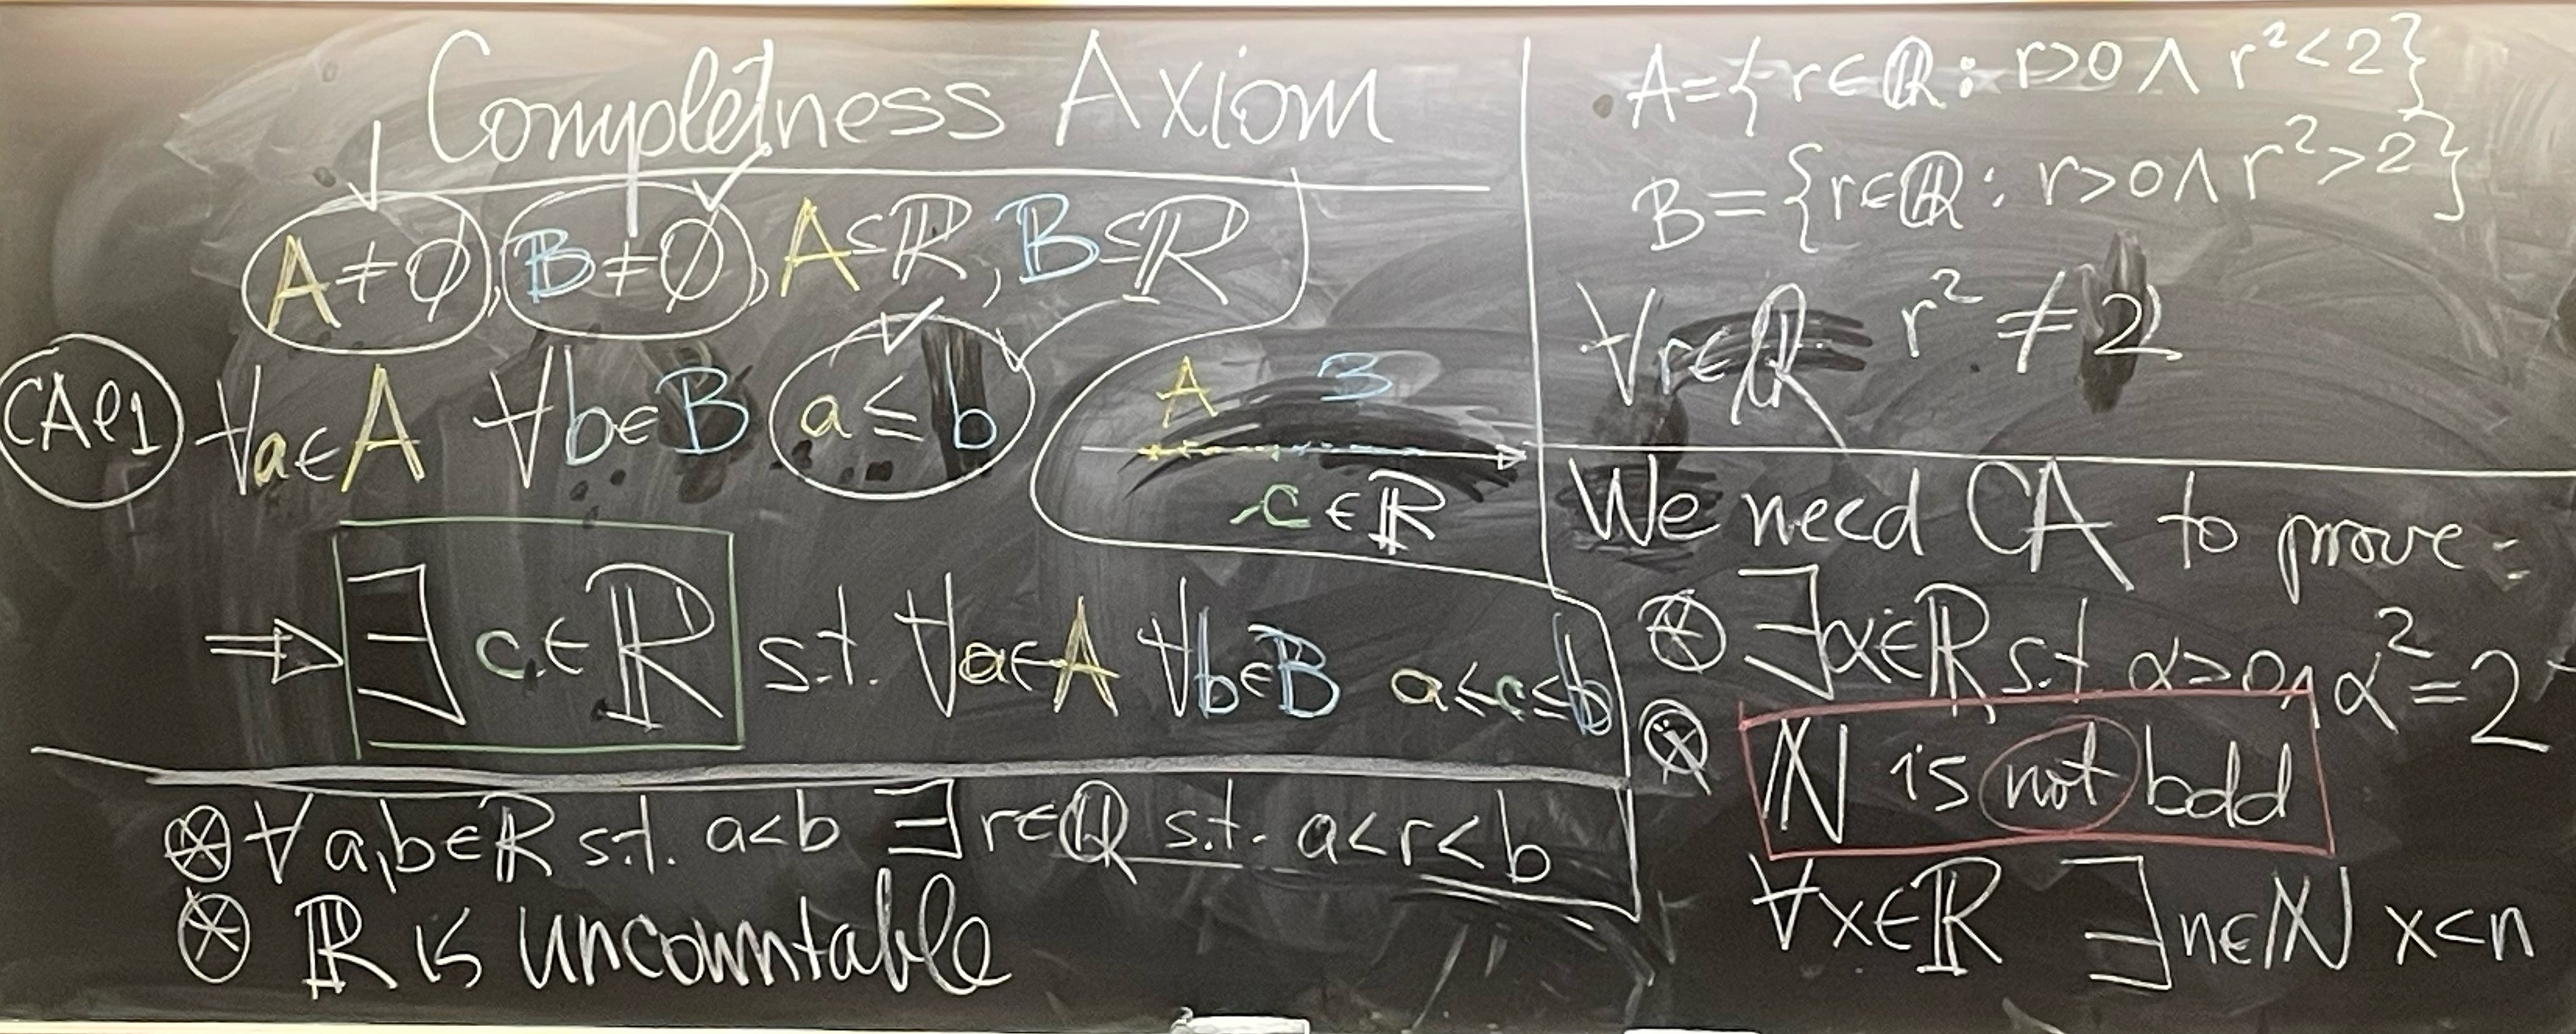 Completness Axiom
A≠∅, B≠∅, A⊆ℝ, B⊆ℝ
CAP1 ∀a∈A ∀b∈B a≤b
A B
c∈ℝ
⇒ ∃ c∈ℝ s.t. ∀a∈A ∀b∈B a≤c≤b
⊛ ∀ a,b∈ℝ s.t. a<b ∃r∈ℚ s.t. a<r<b
⊛ ℝ is uncountable
A={r∈ℚ: r>0 ∧ r²<2}
B={r∈ℚ: r>0 ∧ r²>2}
∀r∈ℚ r²≠2
We need CA to prove:
⊛ ∃α∈ℝ s.t α>0 ∧ α²=2
⊛ ℕ is not bdd
∀x∈ℝ ∃n∈ℕ x<n